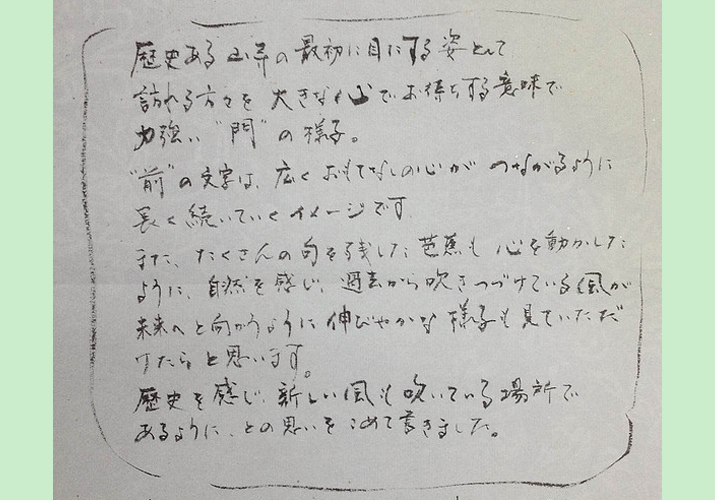 歴史ある山寺の最初に目にする姿として
訪れる方々を 大きな心でお待ちする意味で
力強い"門"の様子。
"前"の文字は、広くおもてなしの心が つながるように
長く続いていくイメージです
また、たくさんの句を残した芭蕉も 心を動かした
ように、自然を感じ、過去から吹きつづけている風が
未来へと向かうように 伸びやかな 様子も見ていただ
けたらと思います。
歴史を感じ、新しい風も吹いている場所で
あるように、との思いをこめて書きました。